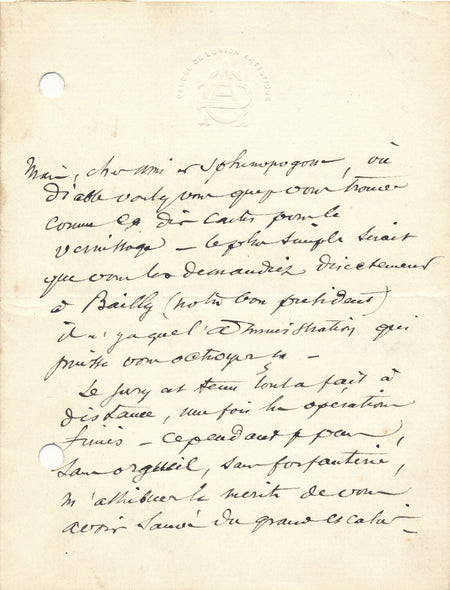 CERCLE DE L'UNION ARTISTIQUE
Mais, cher ami et Sphinopogone, où
diable voulez vous que je vous trouve
comme ça dix cartes pour le
vernissage – le plus simple serait
que vous les demandiez directement
à Bailly (notre bon président)
il n'y a que l'administration qui
puisse vous octroyer ça –
Le jury est tenu tout à fait à
distance, une fois les opérations
finies – cependant je peux,
sans orgueil, sans forfanterie,
m'attribuer le mérite de vous
avoir sauvé du grand escalier –